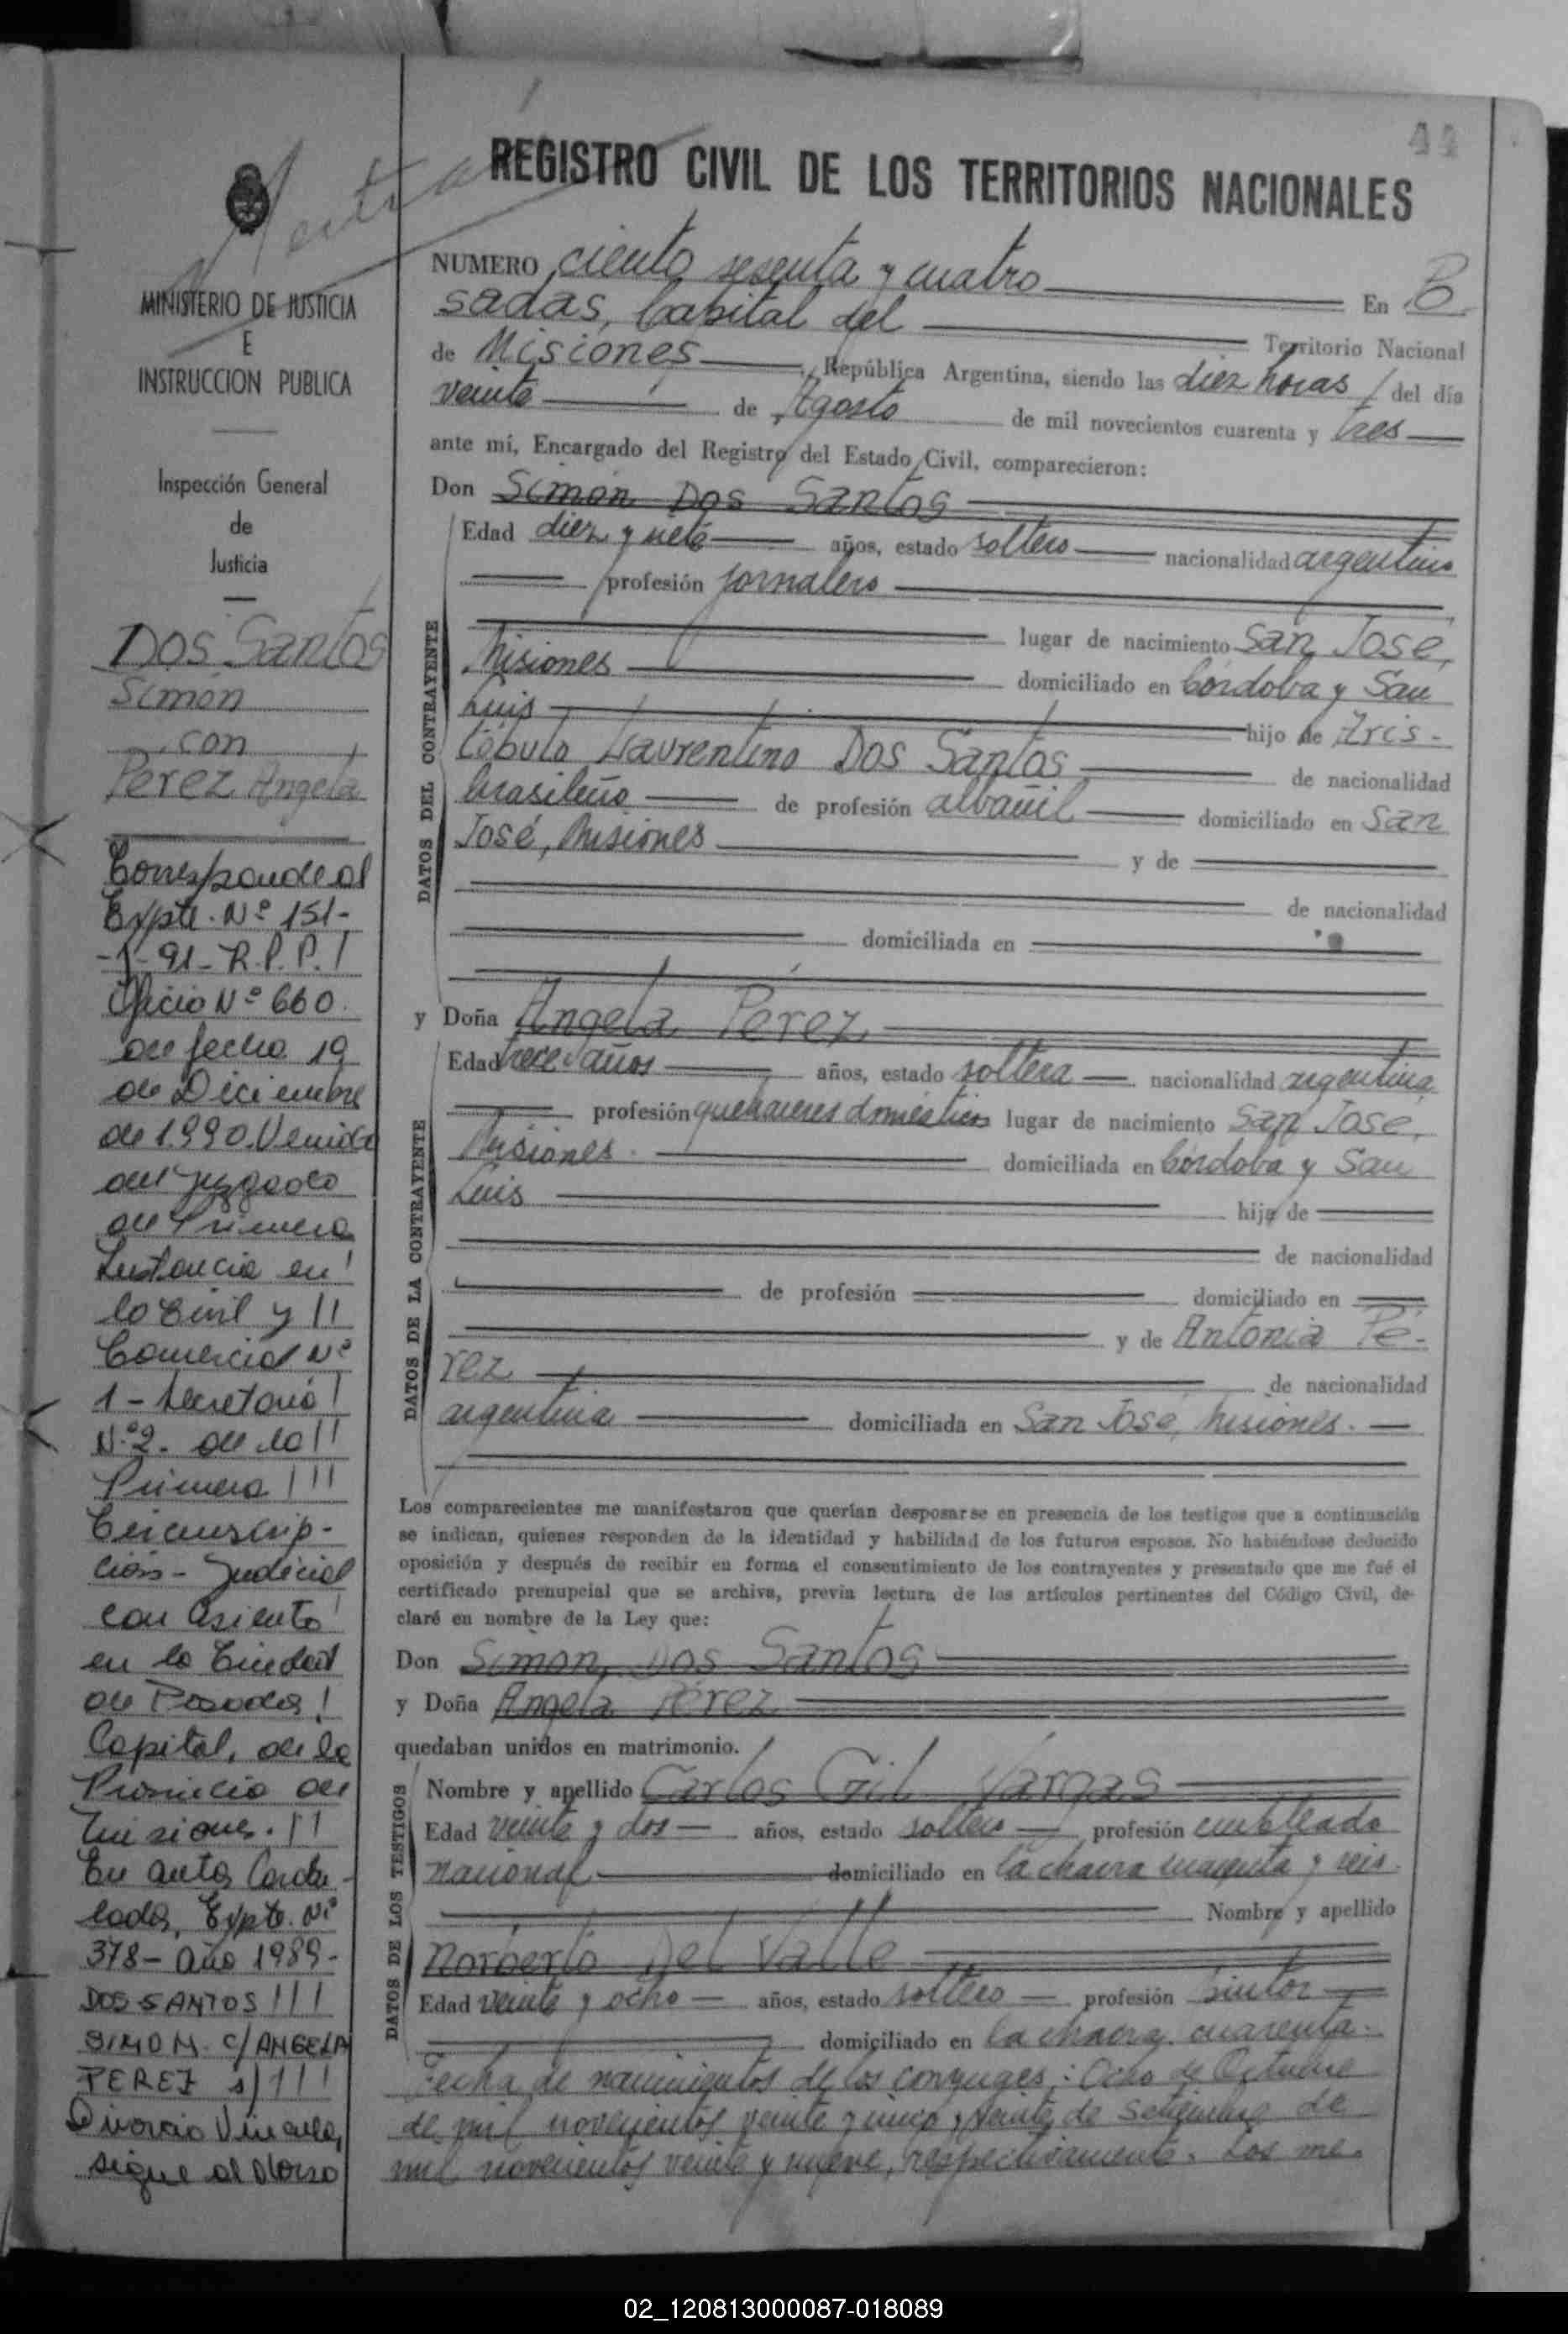 44
REGISTRO CIVIL DE LOS TERRITORIOS NACIONALES
MINISTERIO DE JUSTICIA
E
INSTRUCCION PUBLICA
Inspección General
de
Justicia
Dos Santos
Simón
con
Pérez Angela
Corresponde al
Expte. Nº 151-
-1-91- R.P.P.!
Oficio Nº 660.
de fecha 19
de Diciembre
de 1.990. Venido
del Juzgado
de Primera
Instancia en!
lo Civil y !!
Comercial Nº
1 - Secretaría!
Nº2- de la!!
Primera!!!
Circunscrip-
ción - Judicial
con asiento!
en la Ciudad
de Posadas!
Capital, de la
Provincia de
Misiones.!!
En autos Caratu-
lados, Expte. Nº
378- Año 1989-
DOS SANTOS!!!
SIMON. C/ANGELA
PEREZ s/!!!
Divorcio Vincular,
sigue al dorso
NUMERO ciento sesenta y cuatro En Po
sadas, Capital del Territorio Nacional
de Misiones, República Argentina, siendo las diez horas del día
veinte de Agosto de mil novecientos cuarenta y tres
ante mí, Encargado del Registro del Estado Civil, comparecieron:
Don Simón Dos Santos
DATOS DEL CONTRAYENTE
Edad diez y siete años, estado soltero nacionalidad argentino
profesión jornalero
lugar de nacimiento San José,
Misiones domiciliado en Córdoba y San
Luis hijo de Aris-
tóbulo Laurentino Dos Santos de nacionalidad
brasileño de profesión albañil domiciliado en San
José, Misiones y de
de nacionalidad
domiciliada en
y Doña Angela Pérez
DATOS DE LA CONTRAYENTE
Edad trece años años, estado soltera nacionalidad argentina
profesión quehaceres domésticos lugar de nacimiento San José,
Misiones. domiciliada en Córdoba y San
Luis hija de
de nacionalidad
de profesión domiciliado en
y de Antonia Pé-
rez de nacionalidad
argentina domiciliada en San José, Misiones.
Los comparecientes me manifestaron que querían desposarse en presencia de los testigos que a continuación
se indican, quienes responden de la identidad y habilidad de los futuros esposos. No habiéndose deducido
oposición y después de recibir en forma el consentimiento de los contrayentes y presentado que me fué el
certificado prenupcial que se archiva, previa lectura de los artículos pertinentes del Código Civil, de-
claré en nombre de la Ley que:
Don Simón Dos Santos
y Doña Angela Pérez
quedaban unidos en matrimonio.
DATOS DE LOS TESTIGOS
Nombre y apellido Carlos Gil Vargas
Edad veinte y dos años, estado soltero profesión empleado
nacional domiciliado en la chacra cuarenta y seis
Nombre y apellido
Norberto Del Valle
Edad veinte y ocho años, estado soltero profesión pintor
domiciliado en la chacra cuarenta.
Fecha de nacimientos de los conyuges: Ocho de Octubre
de mil novecientos veinte y cinco y veinte de Setiembre de
mil novecientos veinte y nueve, respectivamente. Los me-
02_120813000087-018089